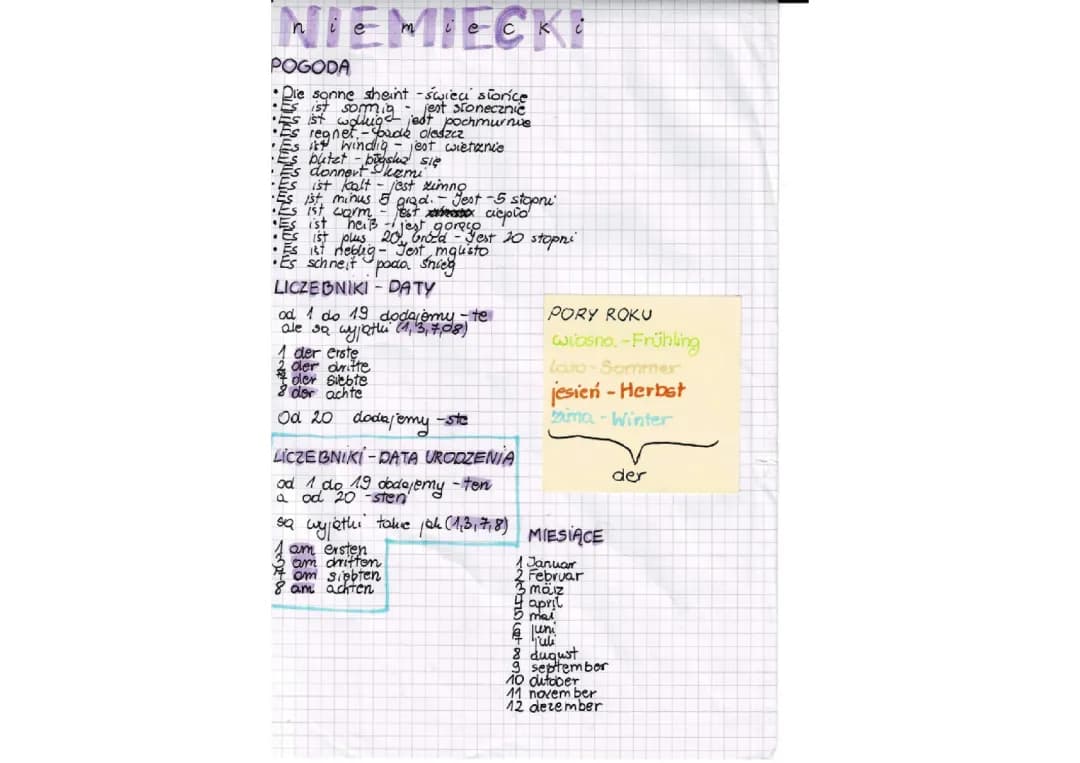 NIEMIECKI
niemiecki
POGODA
• Die sonne sheint - świeci słońce
• Es ist sonnig - jest słonecznie
• Es ist wolkig - jest pochmurnie
• Es regnet. - pada deszcz
• Es ist windig - jest wietrznie
• Es blitzt - błyska się
• Es donnert - grzmi
• Es ist kalt - jest zimno
• Es ist minus 5 grad. - Jest -5 stopni
• Es ist warm - jest ciepło
• Es ist heiß - jest gorąco
• Es ist plus 20 Grad - Jest 20 stopni
• Es ist neblig - Jest mglisto
• Es schneit pada śnieg
LICZEBNIKI - DATY
od 1 do 19 dodajemy - te
ale są wyjątki (1,3,7,8)
1 der erste
der dritte
7 der siebte
8 der achte
Od 20 dodajemy - ste
LICZEBNIKI - DATA URODZENIA
od 1 do 19 dodajemy - ten
a od 20 - sten
są wyjątki takie jak (1,3,7,8)
1 am ersten
3 am dritten
7 am siebten
8 am achten
PORY ROKU
wiosna. - Frühling
lato - Sommer
jesień - Herbst
zima - Winter
der
MIESIĄCE
1 Januar
2 Februar
3 märz
4 april
5 mai
6 juni
7 juli
8 august
9 september
10 oktober
11 november
12 dezember